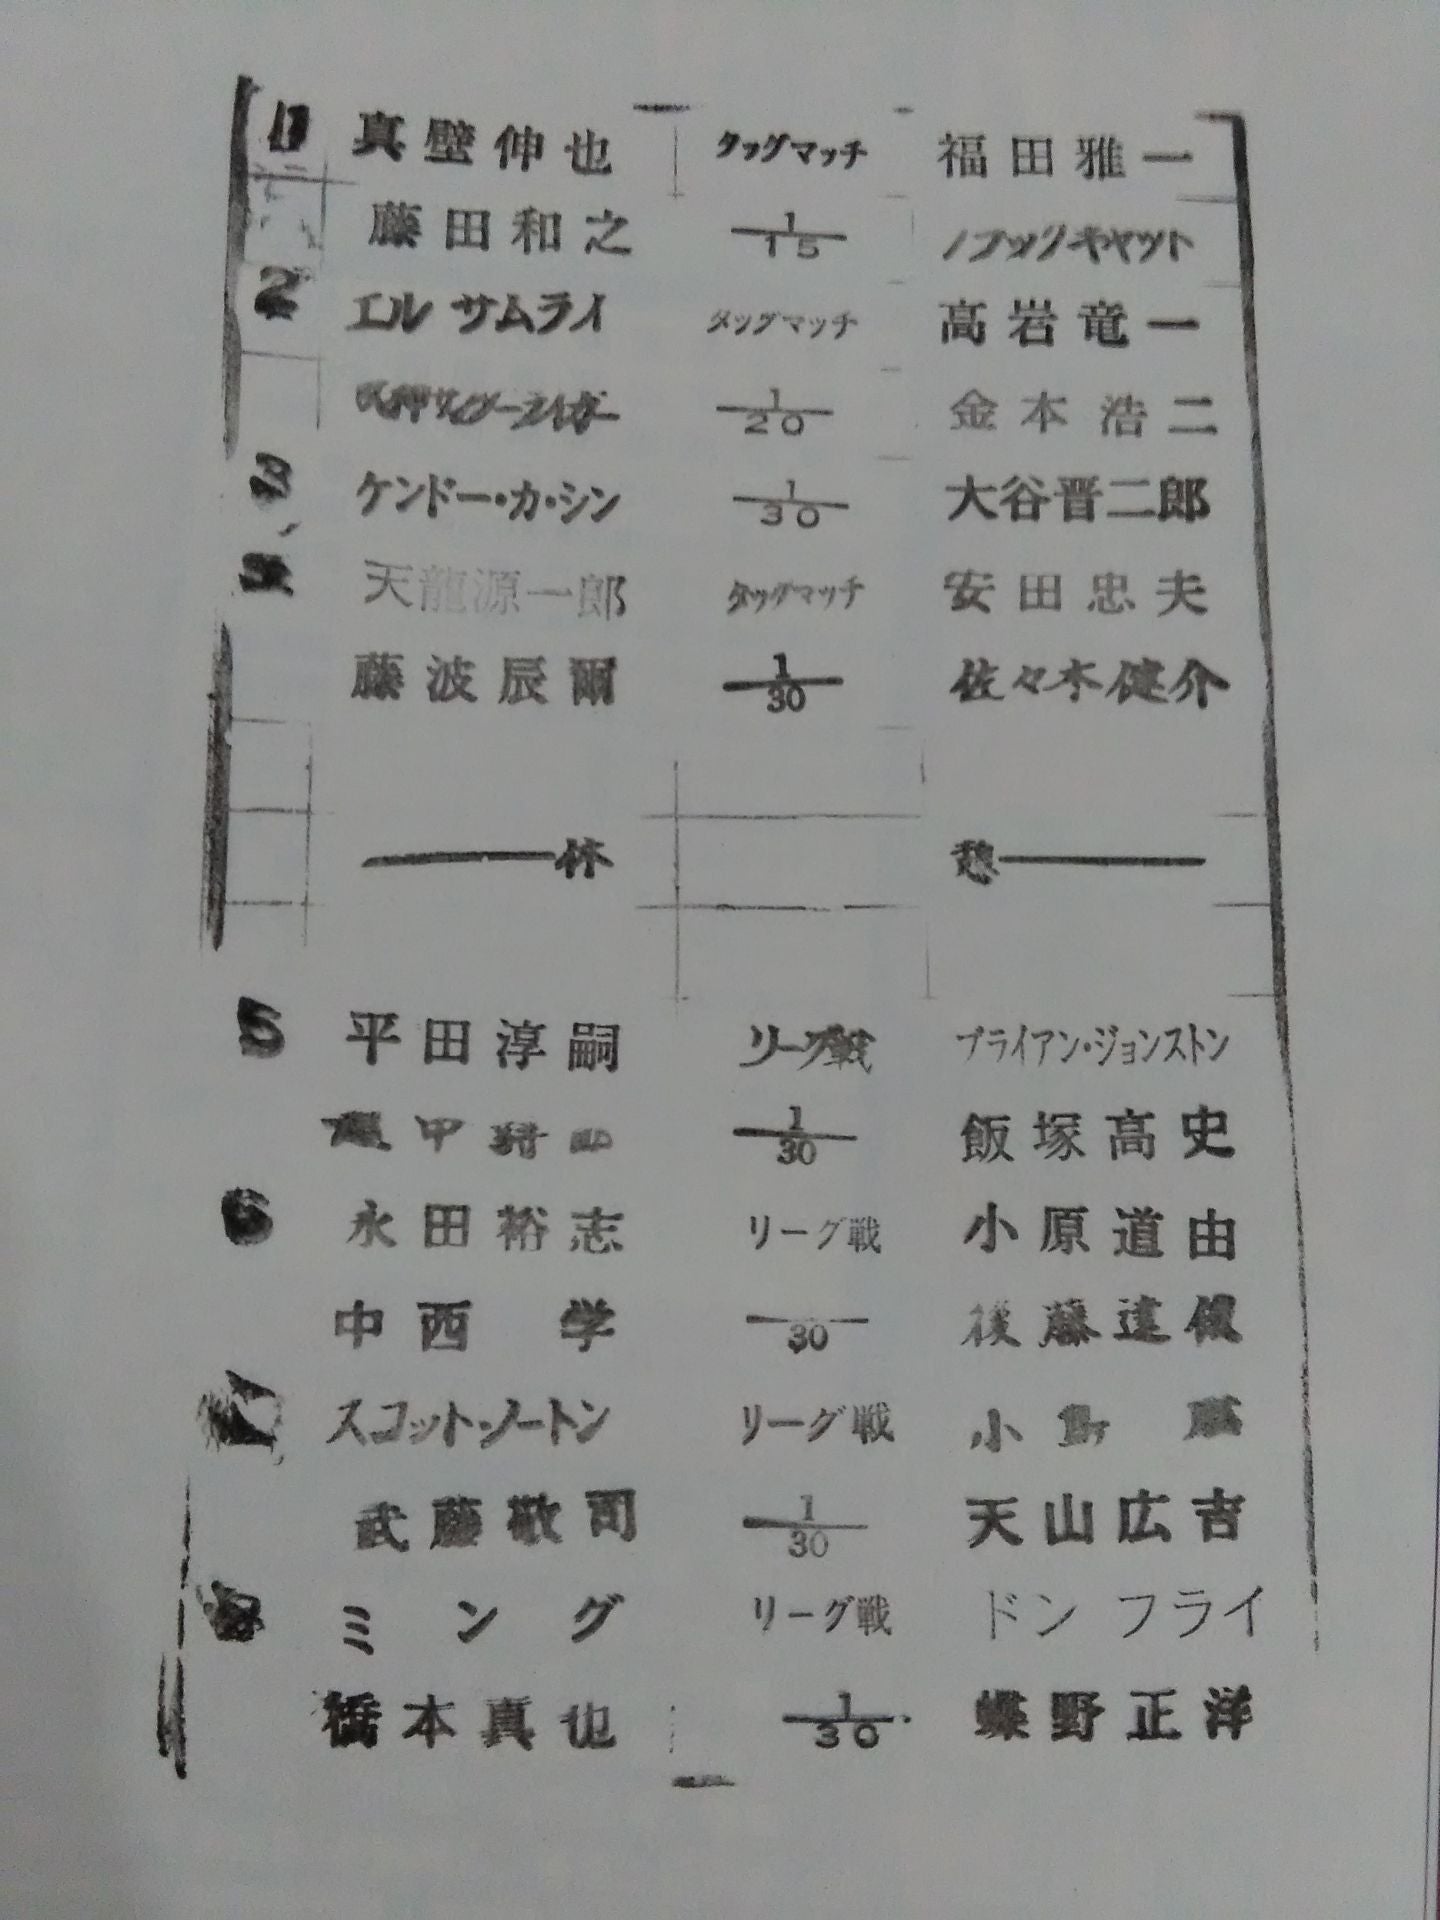 1 真壁伸也 タッグマッチ 福田雅一
藤田和之 1/15 ブラックキャット
2 エル サムライ タッグマッチ 高岩竜一
獣神サンダーライガー 1/20 金本浩二
3 ケンドー・カ・シン 1/30 大谷晋二郎
天龍源一郎 タッグマッチ 安田忠夫
藤波辰爾 1/30 佐々木健介
休 憩
5 平田淳嗣 リーグ戦 ブライアン・ジョンストン
1/30 飯塚高史
6 永田裕志 リーグ戦 小原道由
中西 学 30 後藤達俊
スコット・ノートン リーグ戦 小島 聡
武藤敬司 1/30 天山広吉
ミング リーグ戦 ドン フライ
橋本真也 1/30 蝶野正洋